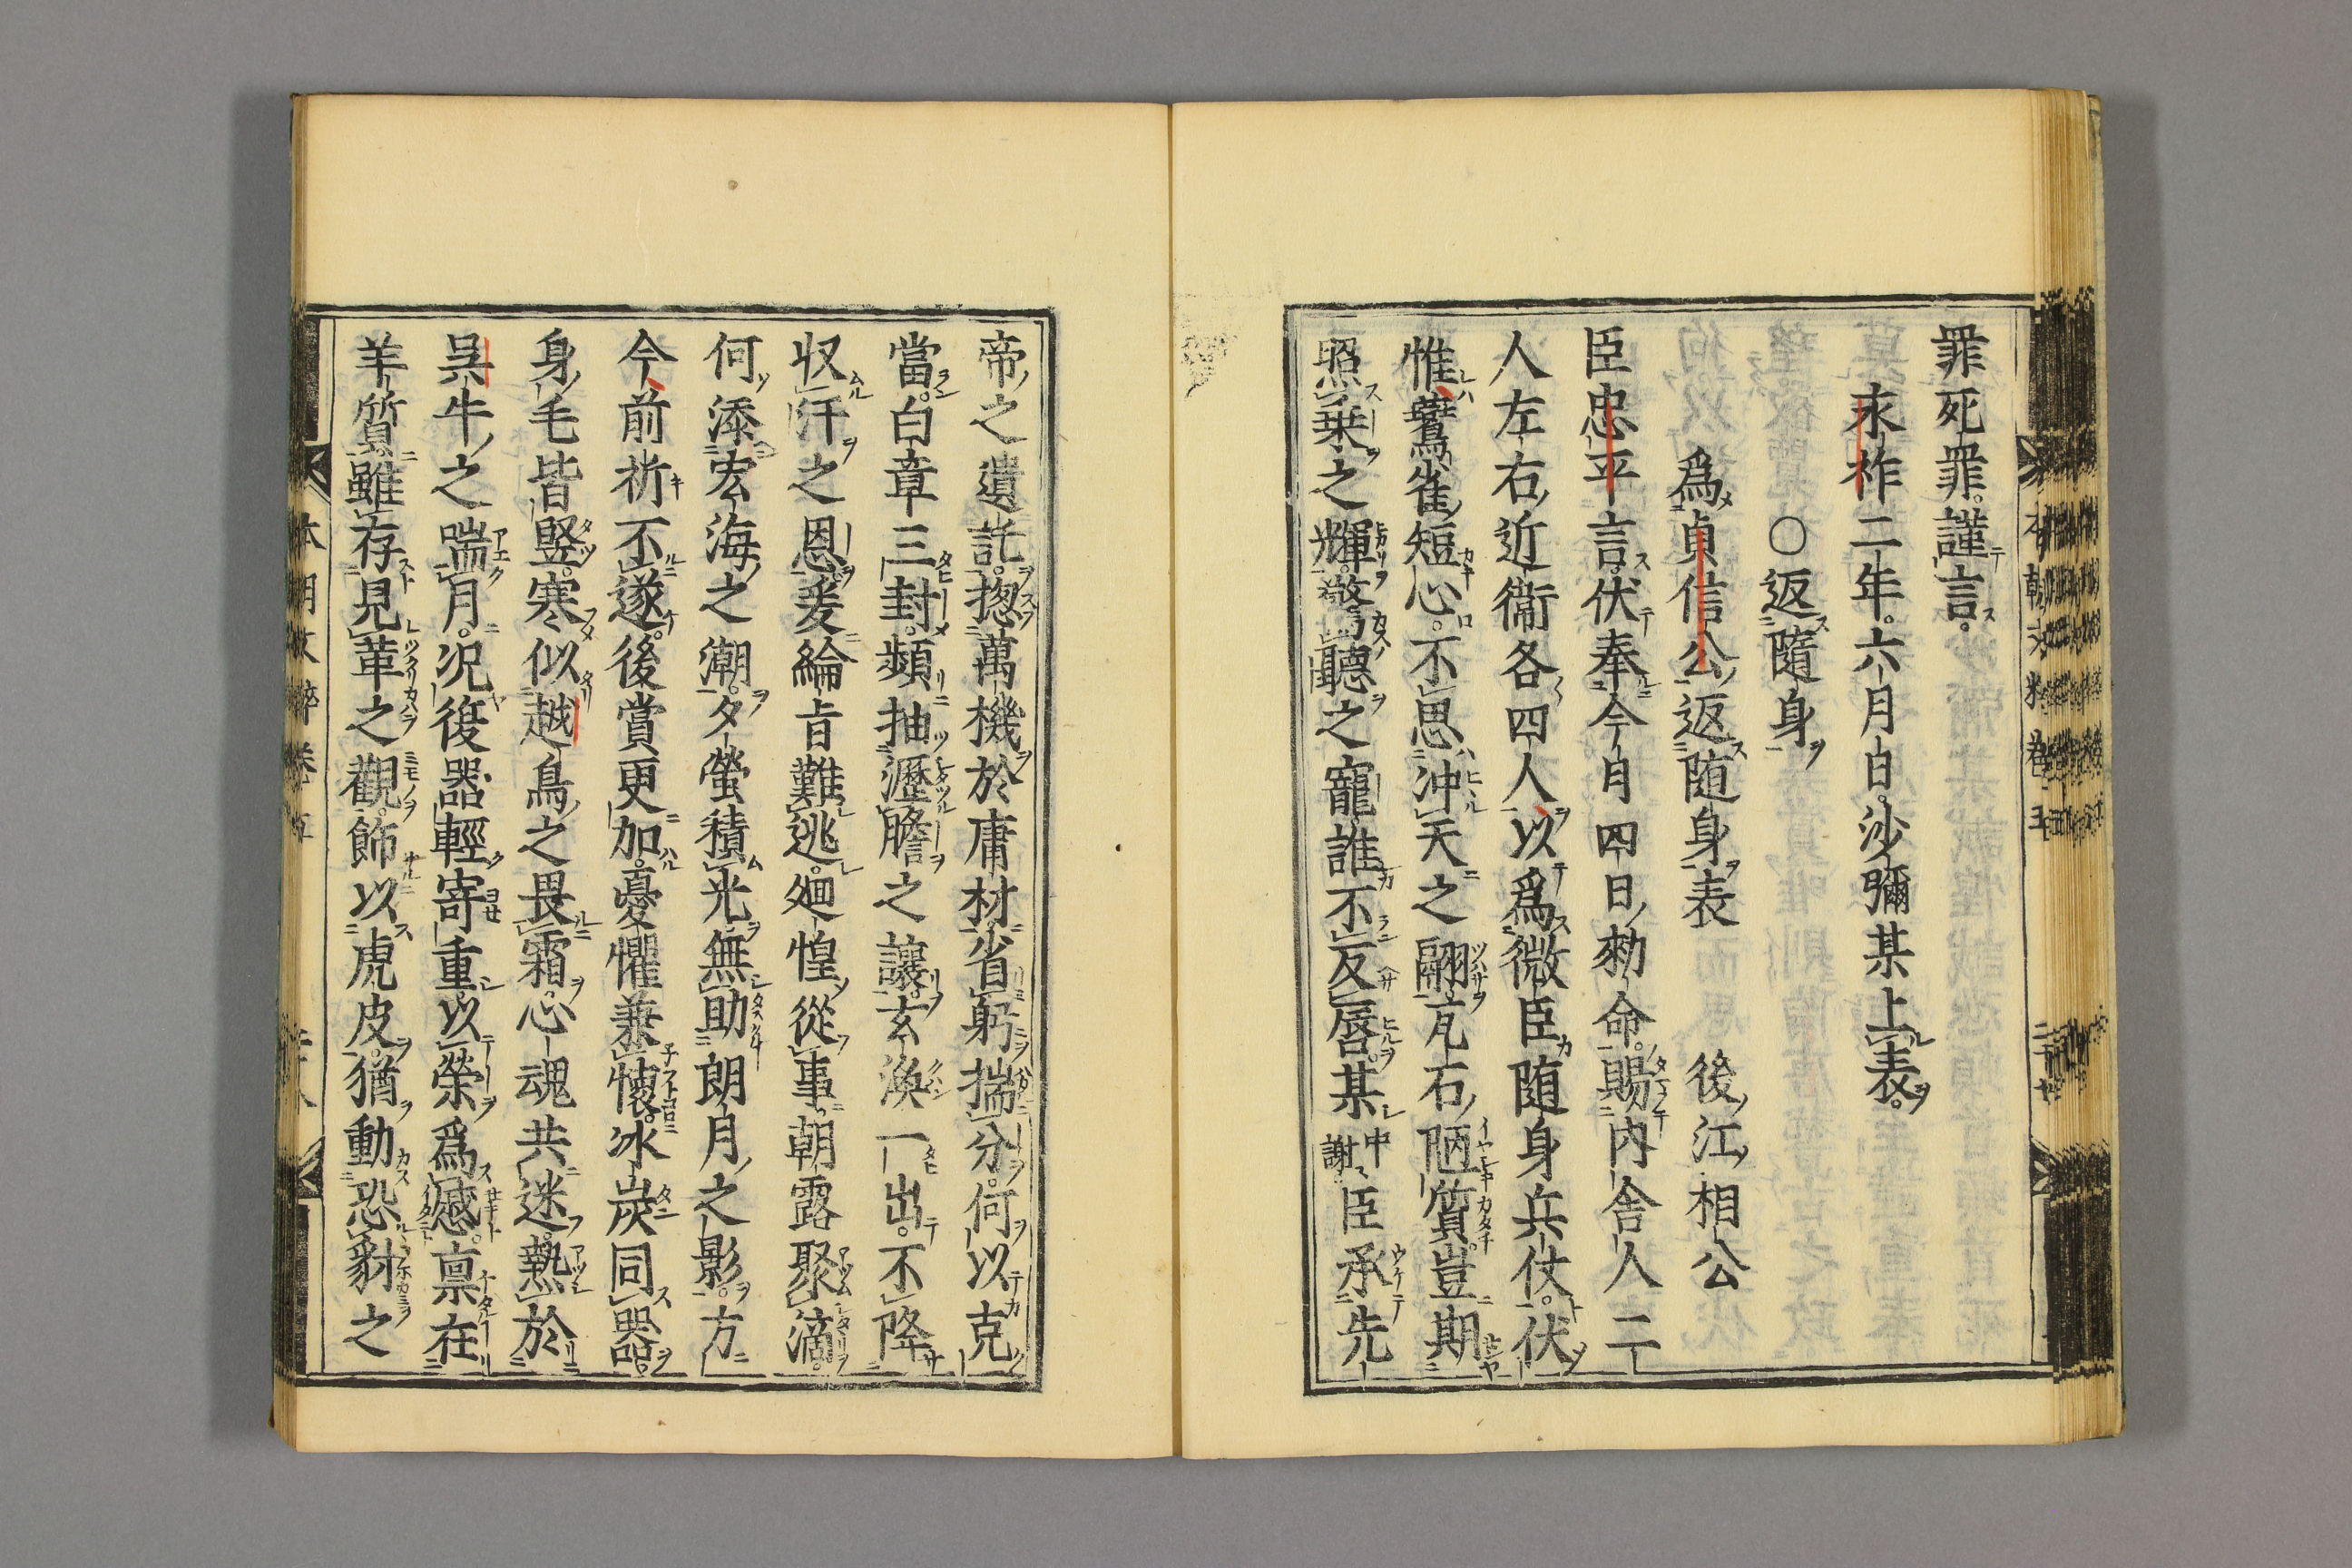 罪死罪。謹言。
永祚二年。六月日。沙彌某上表。
○返隨身
爲貞信公返随身表　後江相公
臣忠平言。伏奉今月四日勅命。賜内舎人二
人左右近衞各四人以爲微臣随身兵仗。伏
惟鷰雀短心。不思沖天之翮。瓦石陋質。豈期
照乗之輝。驚聽之寵誰不反脣。某中謝臣承先
帝之遺託。揔萬機於庸材。省躬揣分。何以克
當。白章三封。頻抽瀝膽之讓。玄渙一出。不降
収汗之恩。爰綸旨難逃。廻惶從事。朝露聚滴。
何添宏海之潮。夕螢積光。無助朗月之影。方
今前祈不遂。後賞更加。憂懼兼懐。氷炭同器。
身毛皆竪。寒似越鳥之畏霜。心魂共迷。熱於
呉牛之喘月。况復器輕寄重。以榮爲慼。禀在
羊質。雖存見革之觀。飾以虎皮。猶動恐豺之
本朝文粹卷五